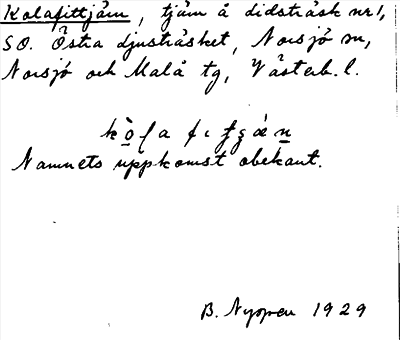 Kolafittjäm, tjäm å didsträsk nr 1,
SO. Östra djusträsket, Norsjö sn,
Norsjö och Malå tg, Västerb. l.
Namnets uppkomst obekant.
B. Nyopen 1929